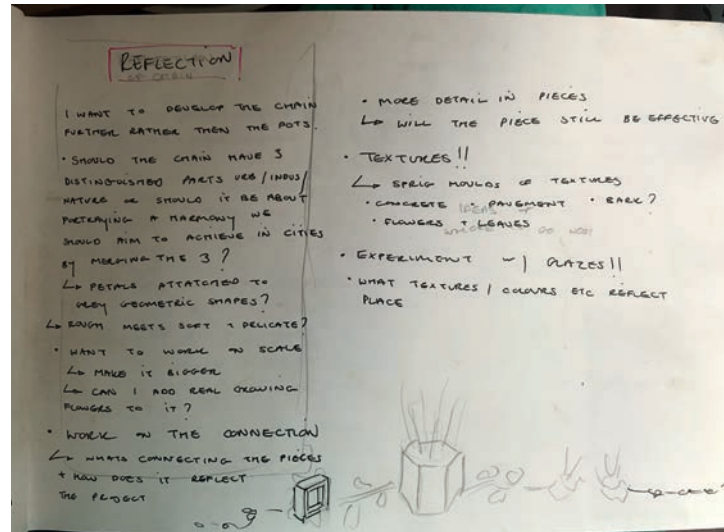 REFLECTION
OF CHAIN
I WANT TO DEVELOP THE CHAIN
FURTHER RATHER THEN THE POTS.
• SHOULD THE CHAIN HAVE 3
DISTINGUISHED PARTS URB/INDUS/
NATURE OR SHOULD IT BE ABOUT
PORTRAYING A HARMONY WE
SHOULD AIM TO ACHIEVE IN CITIES
BY MERGING THE 3?
↳ PETALS ATTATCHED TO
GREY GEOMETRIC SHAPES?
↳ ROUGH MEETS SOFT + DELICATE?
• WANT TO WORK ON SCALE
↳ MAKE IT BIGGER
↳ CAN I ADD REAL GROWING
FLOWERS TO IT?
• WORK ON THE CONNECTION
↳ WHATS CONNECTING THE PIECES
+ HOW DOES IT REFLECT
THE PROJECT
• MORE DETAIL IN PIECES
↳ WILL THE PIECE STILL BE EFFECTIVE
• TEXTURES!!
↳ SPRIG MOULDS OF TEXTURES
• CONCRETE • PAVEMENT • BARK?
IDEAS
• FLOWERS + LEAVES
TO GO NEXT
• EXPERIMENT W/ GLAZES!!
• WHAT TEXTURES / COLOURS ETC REFLECT
PLACE